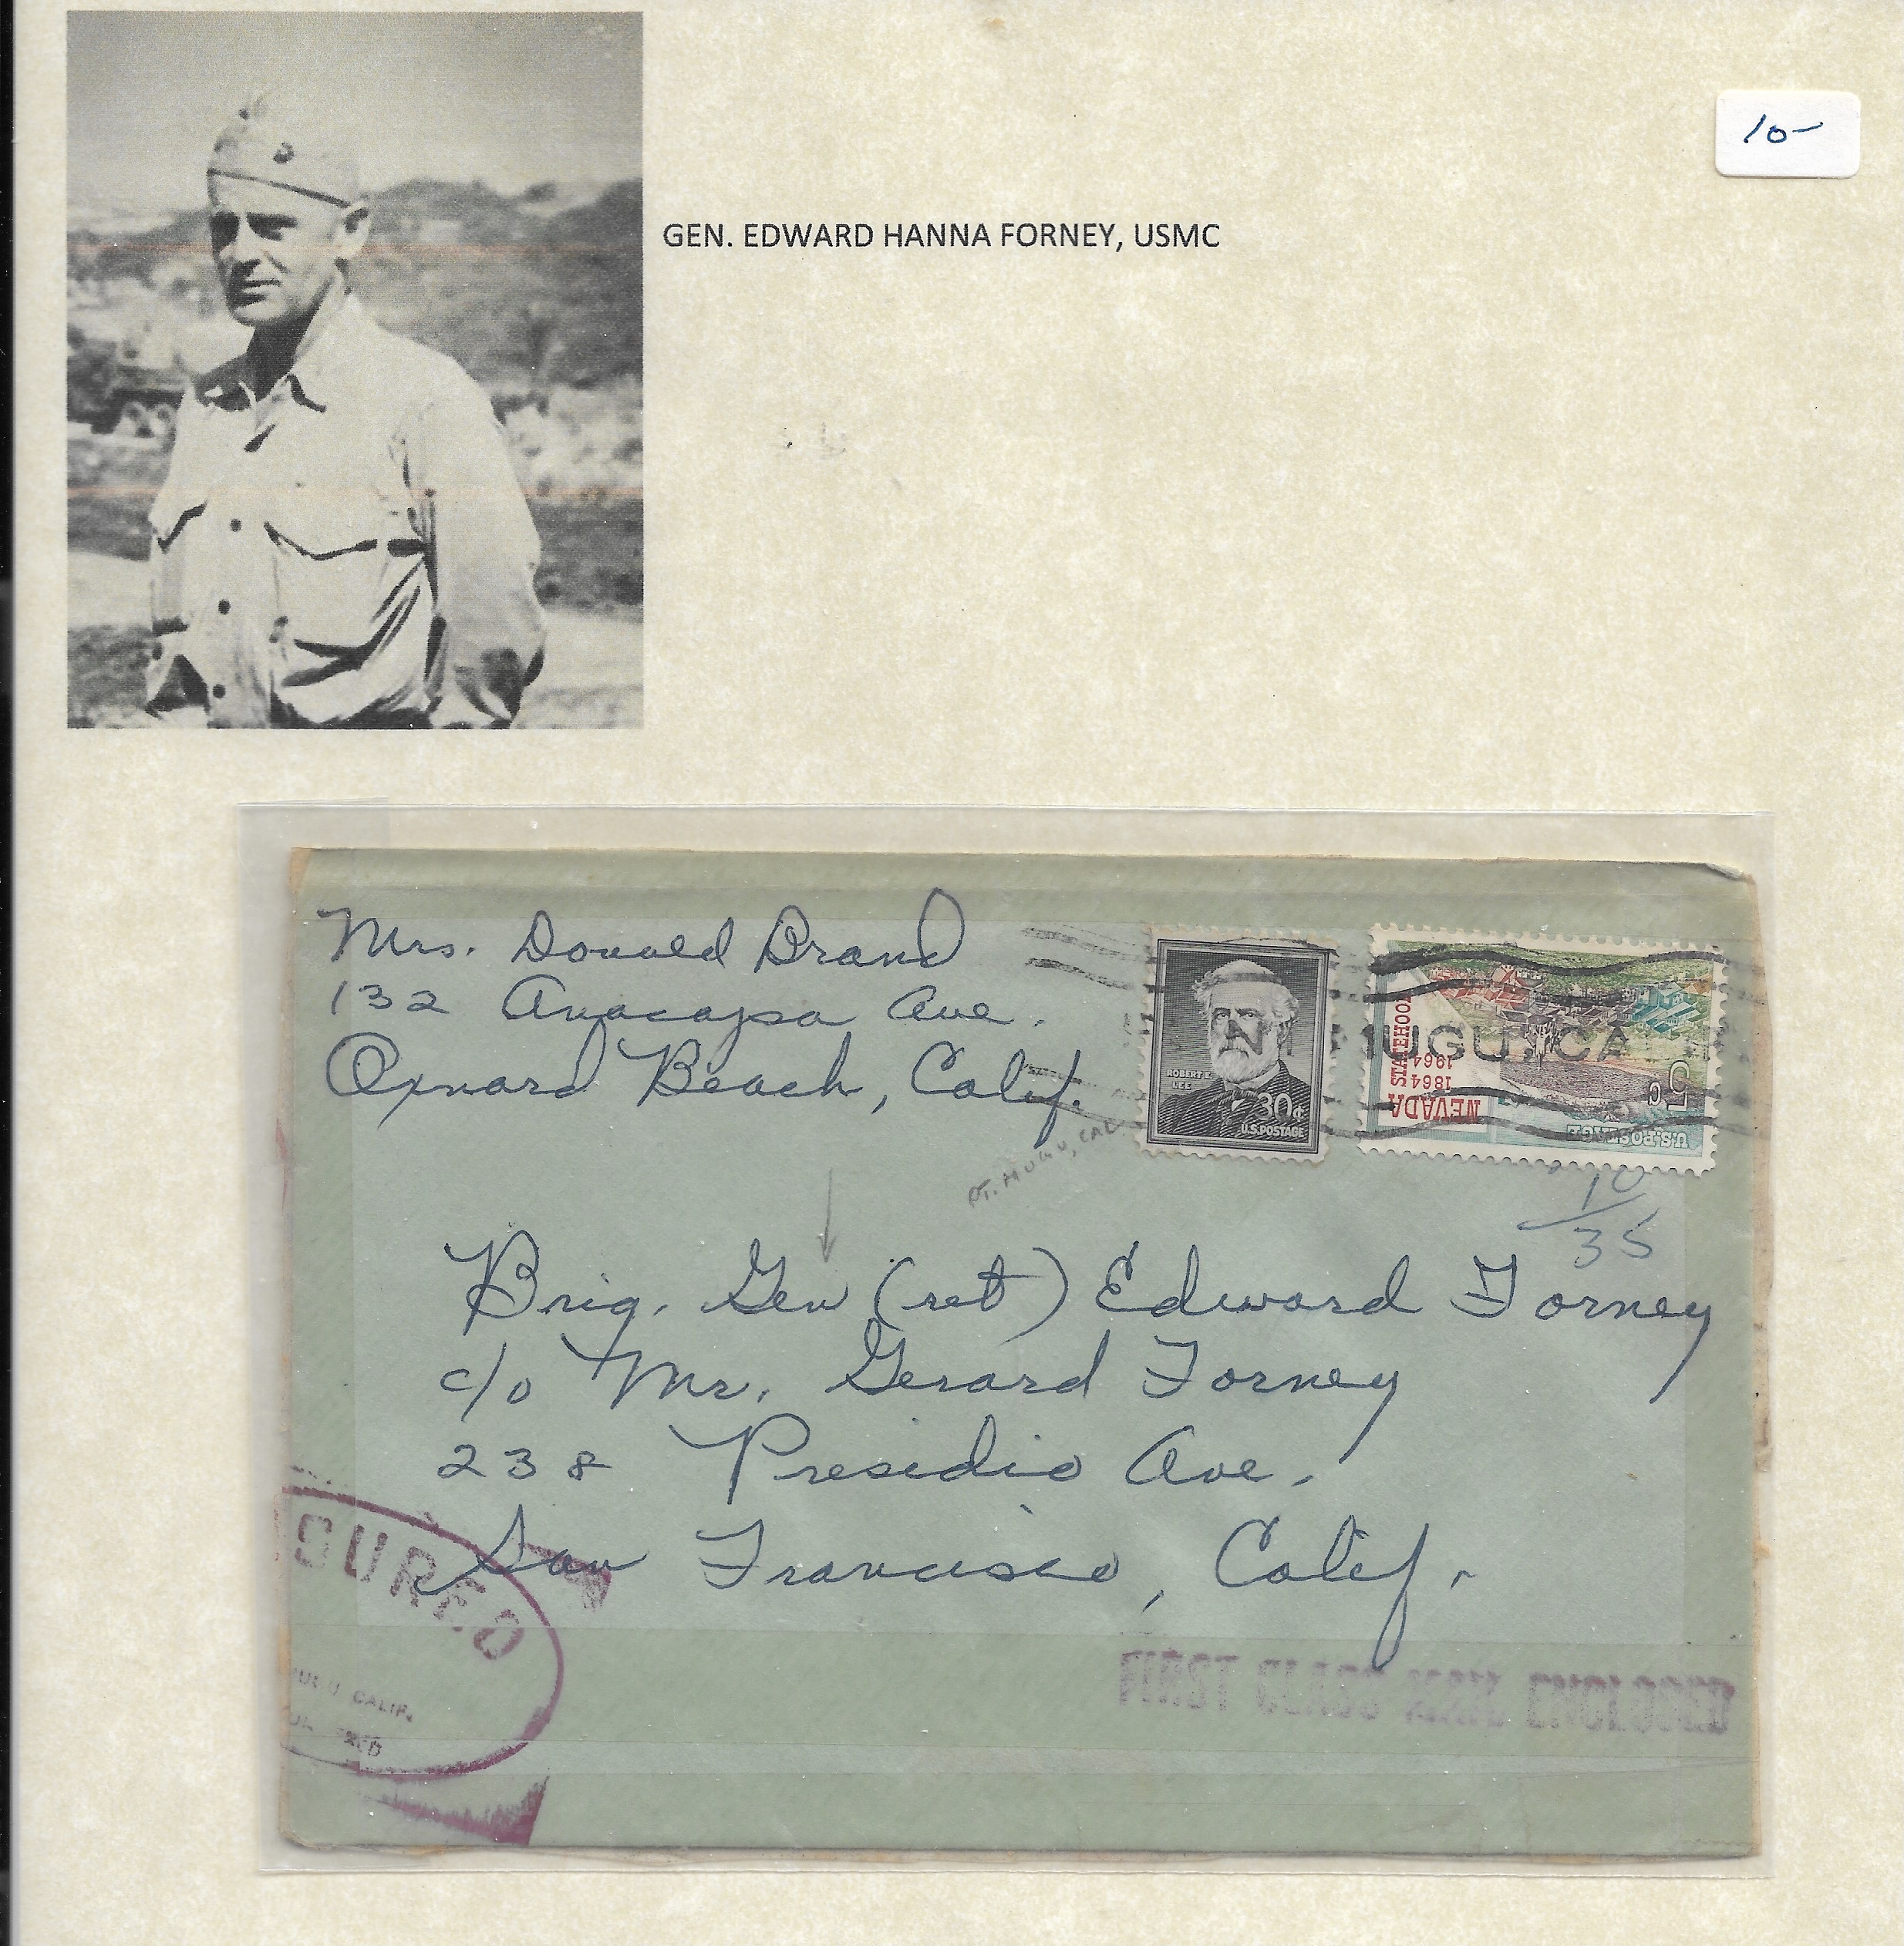 10-
GEN. EDWARD HANNA FORNEY, USMC
Mrs. Donald Brand
132 Anacapa Ave.
Oxnard Beach, Calif.
ROBERT E.
LEE
30¢
U.S. POSTAGE
MUGU, CA
NEVADA
STATEHOOD
1864
1964
5c
U.S. POSTAGE
PT. MUGU, CAL
10
35
Brig. Gen (ret) Edward Forney
c/o Mr. Gerard Forney
238 Presidio Ave.
San Francisco, Calif.
SURED
CALIF.
FIRST CLASS MAIL ENCLOSED